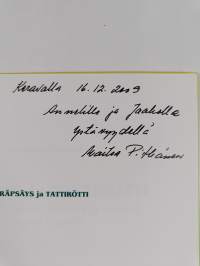 Keravalla 16.12.2009
Annelille ja Jaakolle
ystävyydellä
P.
RÄPSÄYS ja TATTIRÖTTI